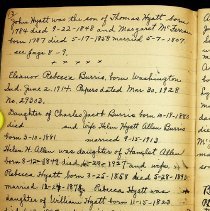 John Hyatt was the son of Thomas Hyatt born
1784 died 9-22-1848 and Margaret McFerran
born 1787 died 5-17-1858 married 5-7-1807
see page 8-9.
Eleanor Rebecca Burris, born Washington
Ind. June 2, 1914. Papers dated Mar 30, 1928
No. 27203.
Daughter of Charles Jacob Burris born 10-19-1881
died and wife Helen Hyatt Allen Burris
born 3-10-1881 married 9-15-1913
Helen H. Allen was daughter of Hamlet Allen
born 8-12-1849 died 8-28-1927 and wife
Rebecca Hyatt born 3-25-1858 died 5-28-1893
married 12-24-1878 Rebecca Hyatt was
daughter of William Hyatt born 11-15-1823